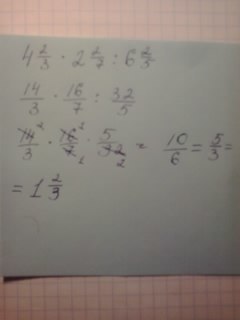 4 2/3 · 2 2/7 : 6 2/5
14/3 · 16/7 : 32/5
14 2/3 · 16 2/7 1 · 5/32 2 = 10/6 = 5/3 =
= 1 2/3